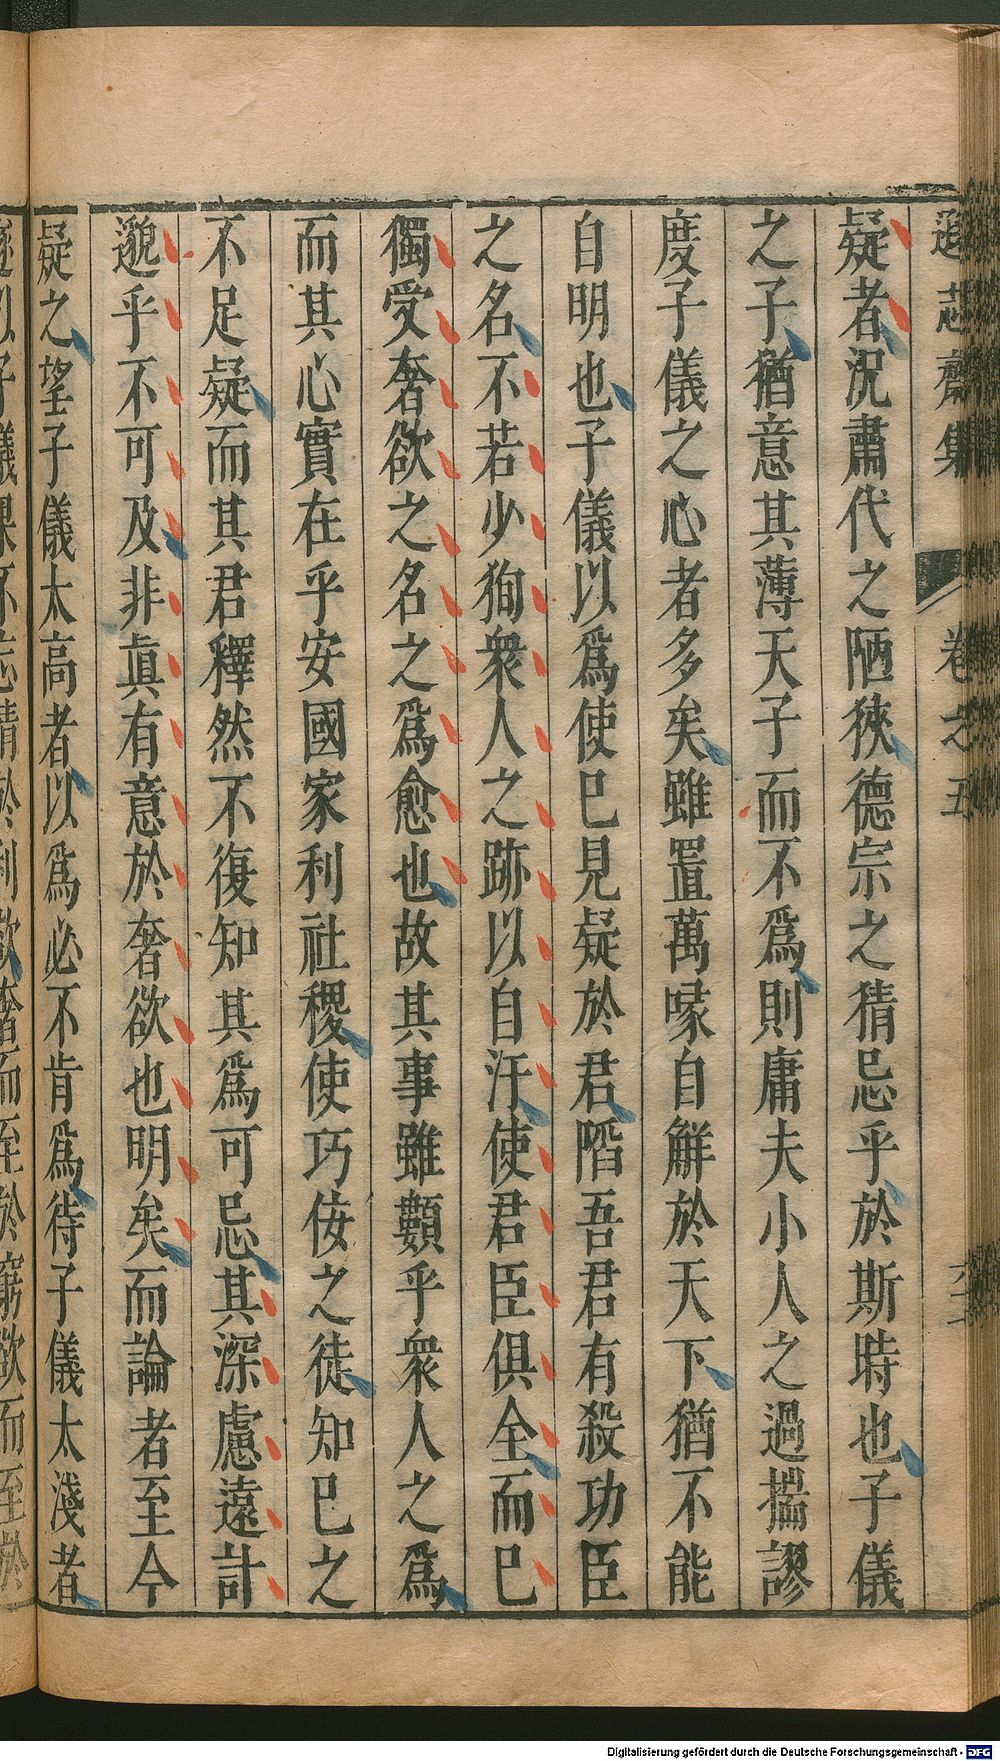 遜志齋集 卷之五
疑者況肅代之陋狹德宗之猜忌乎於斯時也子儀
之子猶意其薄天子而不爲則庸夫小人之過揣謬
度子儀之心者多矣雖置萬喙自解於天下猶不能
自明也子儀以爲使已見疑於君陷吾君有殺功臣
之名不若少狥衆人之跡以自汙使君臣俱全而已
獨受奢欲之名之爲愈也故其事雖類乎衆人之爲
而其心實在乎安國家利社稷使巧佞之徒知已之
不足疑而其君釋然不復知其爲可忌其深慮遠計
邈乎不可及非眞有意於奢欲也明矣而論者至今
疑之望子儀太高者以爲必不肯爲待子儀太淺者
Digitalisierung gefördert durch die Deutsche Forschungsgemeinschaft - DFG